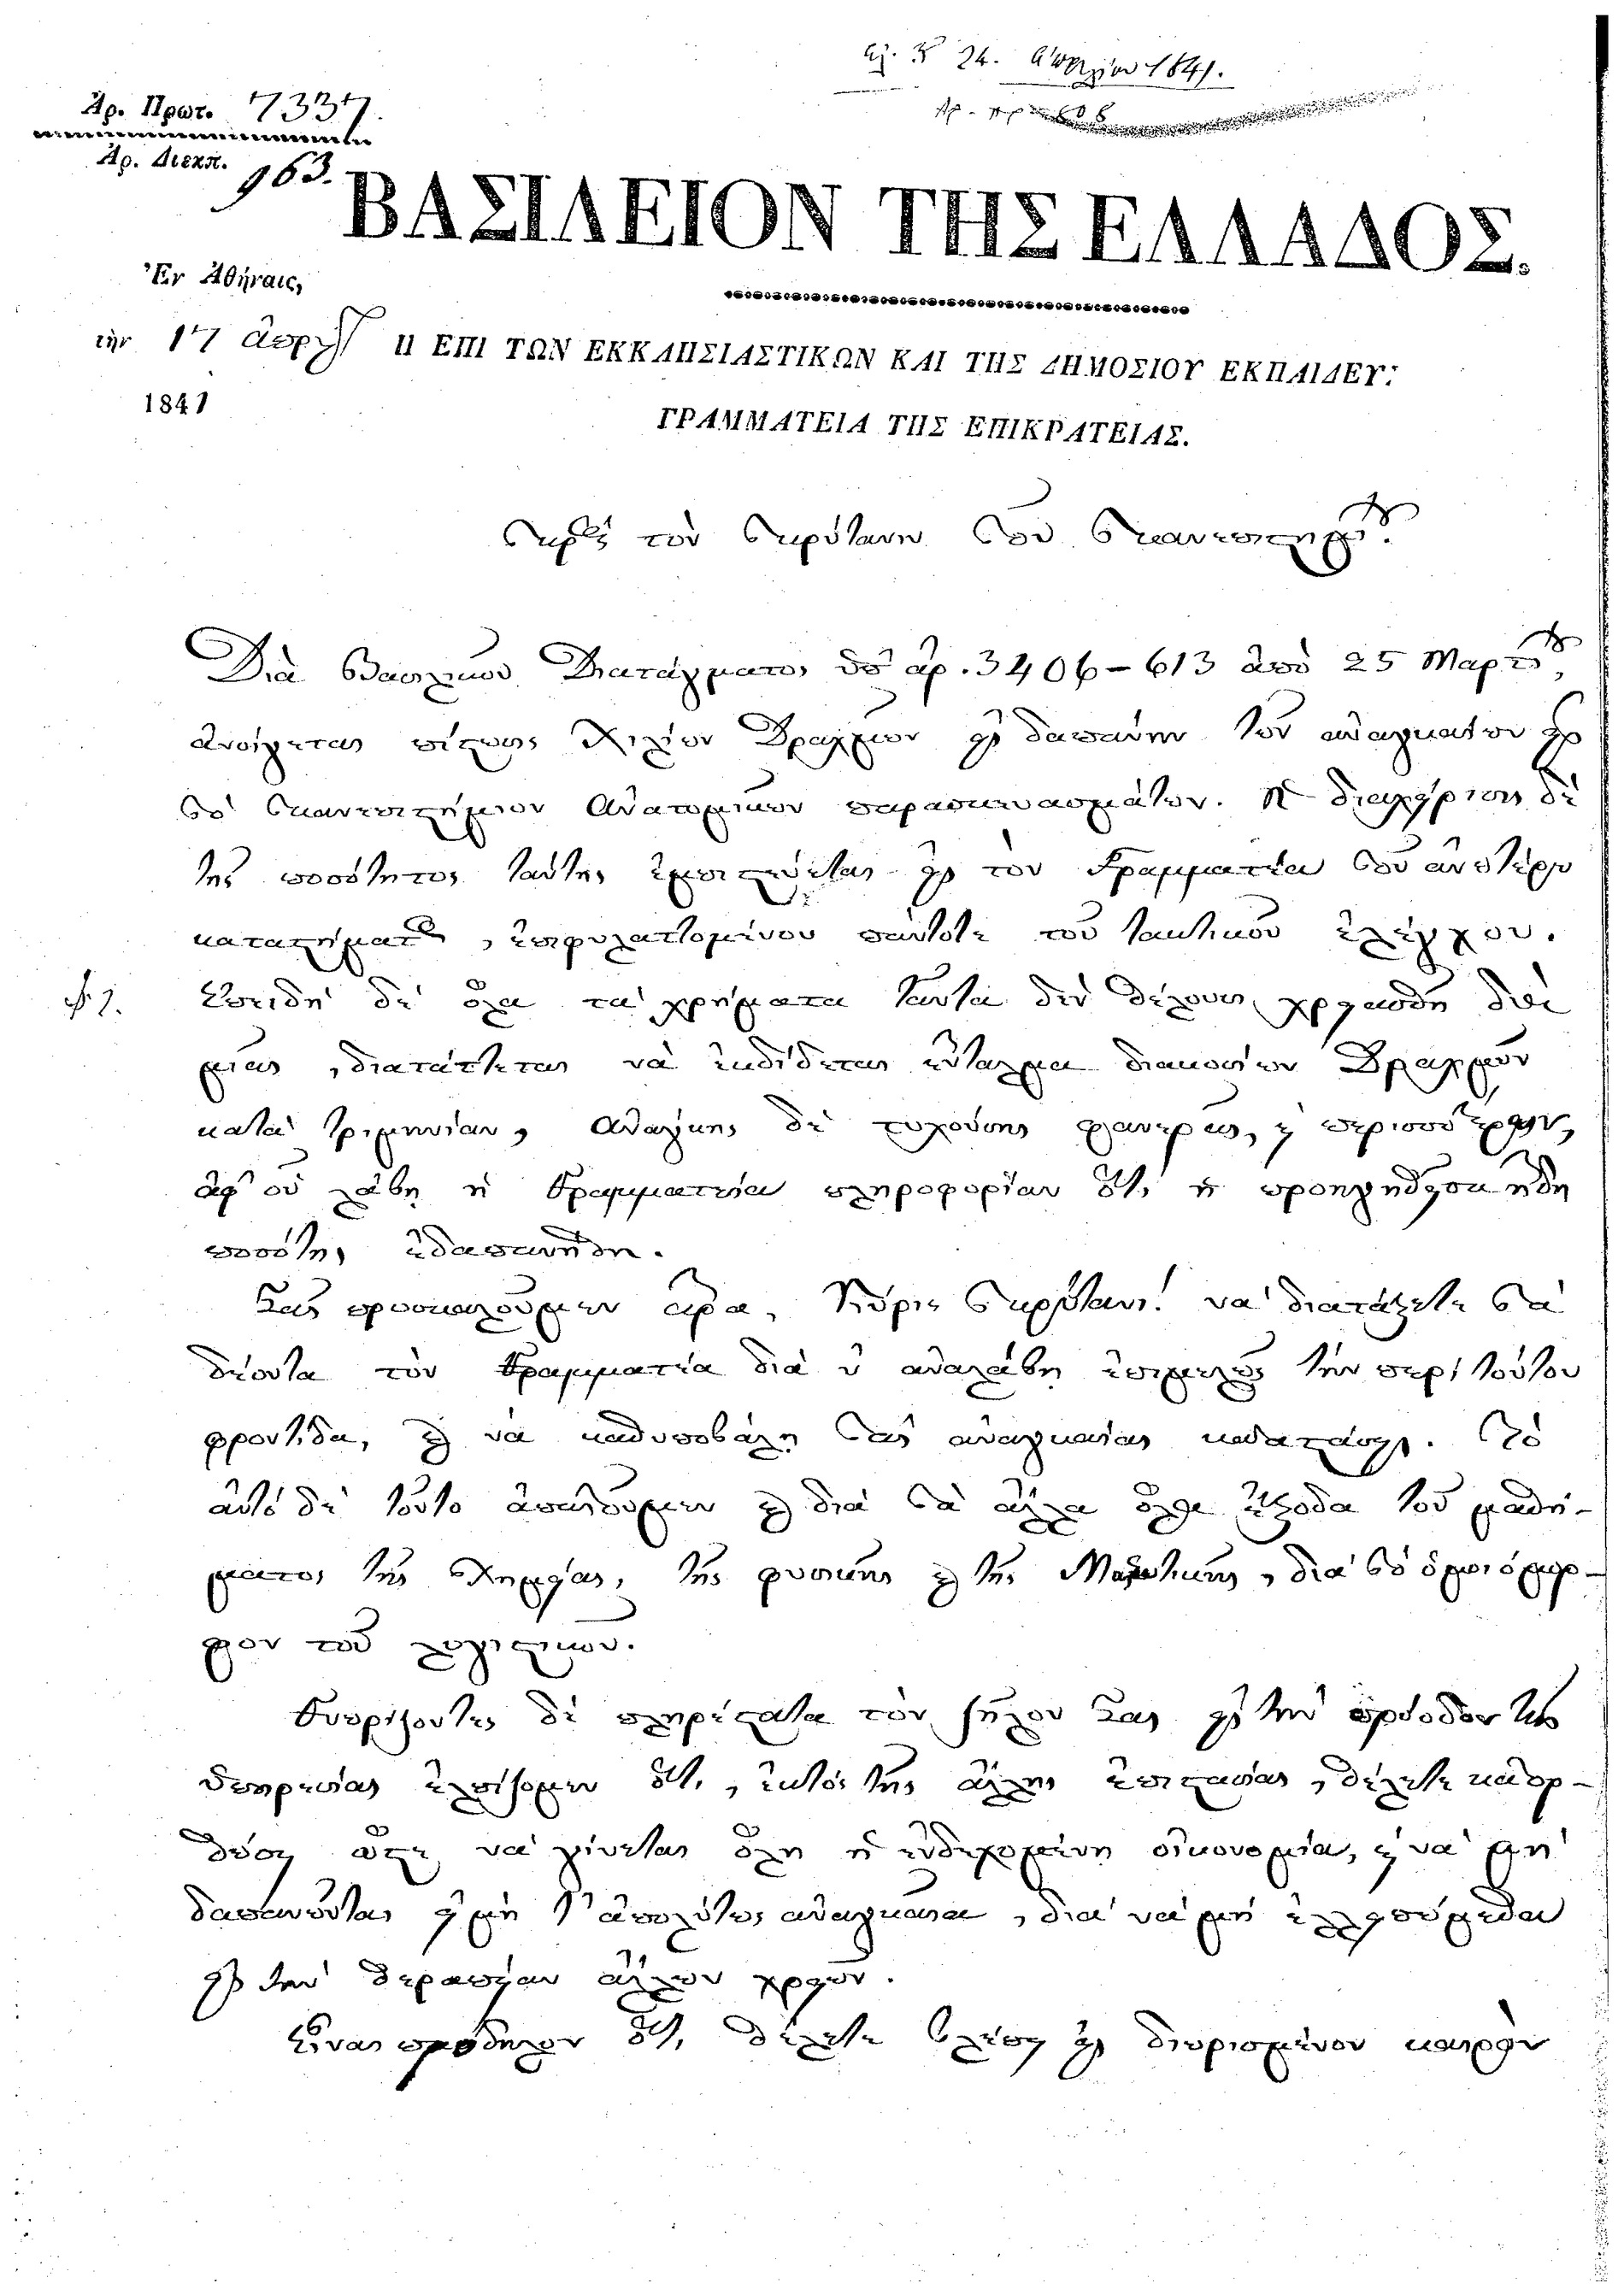 24. Ἀπριλίου 1841.
Ἀρ. Πρωτ. 7337.
Ἀρ. Διεκπ. 963.
ΒΑΣΙΛΕΙΟΝ ΤΗΣ ΕΛΛΑΔΟΣ.
Ἐν Ἀθήναις,
τὴν 17 Ἀπριλ
1841
Η ΕΠΙ ΤΩΝ ΕΚΚΛΗΣΙΑΣΤΙΚΩΝ ΚΑΙ ΤΗΣ ΔΗΜΟΣΙΟΥ ΕΚΠΑΙΔΕΥ:
ΓΡΑΜΜΑΤΕΙΑ ΤΗΣ ΕΠΙΚΡΑΤΕΙΑΣ.
Πρὸς τὸν Πρύτανιν τοῦ Πανεπιστημίου.
Διὰ Βασιλικοῦ Διατάγματος ὑπ' ἀρ. 3406-613 ἀπὸ 25 Μαρτίου,
ἀνοίγεται πίστωσις χιλίων Δραχμῶν εἰς δαπάνην τῶν ἀναγκαίων εἰς
τὸ Πανεπιστήμιον Ἀνατομικῶν παρασκευασμάτων. Ἡ διαχείρισις δὲ
τῆς ποσότητος ταύτης ἐμπιστεύεται εἰς τὸν Γραμματέα τοῦ ἀνωτέρω
καταστήματος, ἐπιφυλαττομένου πάντοτε τοῦ τακτικοῦ ἐλέγχου.
Ἐπειδὴ δὲ ὅλα τὰ χρήματα ταῦτα δὲν θέλουν χρειασθῆ διὰ
μιᾶς, διατάττεται νὰ ἐκδίδεται ἔνταλμα διακοσίων Δραχμῶν
κατὰ τριμηνίαν, ἀνάγκης δὲ τυχούσης φανερᾶς, καὶ περισσοτέρων,
ἀφ' οὗ λάβῃ ἡ Γραμματεία πληροφορίαν ὅτι ἡ προηγηθεῖσα ἤδη
ποσότης ἐδαπανήθη.
Σᾶς προσκαλοῦμεν ἄρα, Κύριε Πρύτανι! νὰ διατάξετε τὰ
δέοντα τὸν Γραμματέα διὰ ν' ἀναλάβῃ ἐπιμελῶς τὴν περὶ τούτου
φροντίδα, καὶ νὰ καθυποβάλῃ τὰς ἀναγκαίας καταστάσεις. Τὸ
αὐτὸ δὲ τοῦτο ἀπαιτοῦμεν καὶ διὰ τὰ ἄλλα ὅλα ἔξοδα τοῦ μαθή-
ματος τῆς Χημείας, τῆς φυσικῆς καὶ τῆς Μαιευτικῆς, διὰ τὸ ὁμοιόμορ-
φον τοῦ λογιστικοῦ.
Γνωρίζοντες δὲ πληρέστατα τὸν ζῆλον Σας εἰς τὴν πρόοδον τῆς
ὑπηρεσίας ἐλπίζομεν ὅτι, ἐκτὸς τῆς ἄλλης ἐπιστασίας, θέλετε κατορ-
θώσει ὥστε νὰ γίνεται ὅλη ἡ ἐνδεχομένη οἰκονομία, καὶ νὰ μὴ
δαπανῶνται εἰμὴ τ' ἀπολύτως ἀναγκαῖα, διὰ νὰ μὴ ἐλλειπώμεθα
εἰς τὴν θεραπείαν ἄλλων χρειῶν.
Εἶναι πρόδηλον ὅτι θέλετε βλέπει εἰς διωρισμένον καιρὸν